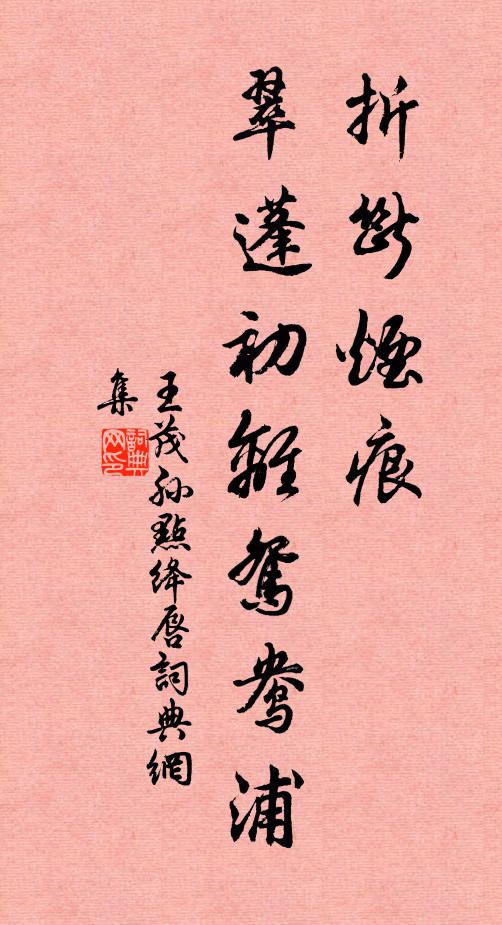 折斷煙痕
翠蓬初離鴛鴦浦
王茂孙點絳唇詞典網
集
詞典
网印